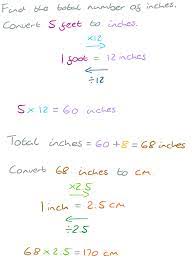 Find the total number of inches.
Convert 5 feet to inches.
×12
1 foot = 12 inches
÷12
5 × 12 = 60 inches
Total inches = 60 + 8 = 68 inches
Convert 68 inches to cm
×2.5
1 inch = 2.5 cm
÷2.5
68 × 2.5 = 170 cm